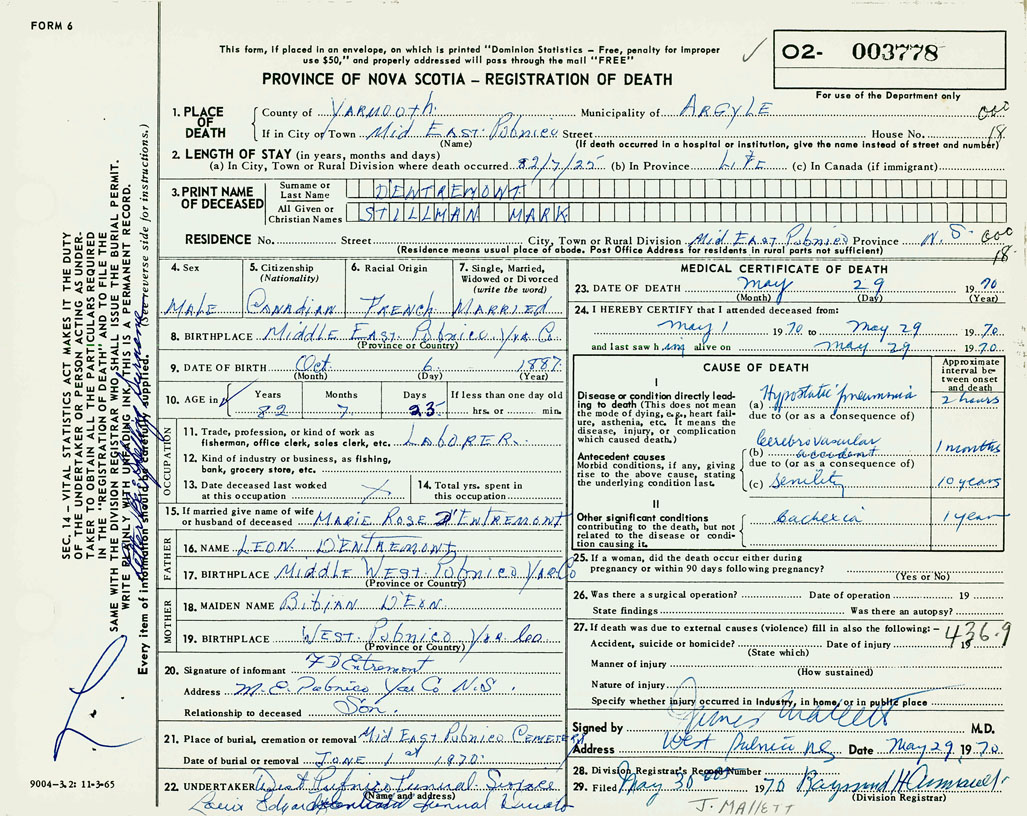 FORM 6
This form, if placed in an envelope, on which is printed "Dominion Statistics – Free, penalty for improper
use $50," and properly addressed will pass through the mail "FREE"
PROVINCE OF NOVA SCOTIA – REGISTRATION OF DEATH
✓
O2- 003778
For use of the Department only
1. PLACE OF DEATH
County of YARMOOTH Municipality of ARGYLE
If in City or Town Mid East Pubnico Street House No. 18
(Name) (If death occurred in a hospital or institution, give the name instead of street and number)
2. LENGTH OF STAY (in years, months and days)
(a) In City, Town or Rural Division where death occurred 82/7/25 (b) In Province LiFE (c) In Canada (if immigrant)
3. PRINT NAME OF DECEASED
Surname or Last Name DENTREMONT
All Given or Christian Names STILLMAN MARK
RESIDENCE No. Street City, Town or Rural Division Mid East Pubnico Province N.S.
(Residence means usual place of abode. Post Office Address for residents in rural parts not sufficient) 18
4. Sex
MALE
5. Citizenship (Nationality)
Canadian
6. Racial Origin
French
7. Single, Married, Widowed or Divorced (write the word)
MARRIED
8. BIRTHPLACE Middle East Pubnico Yar Co
(Province or Country)
9. DATE OF BIRTH Oct. 6 1887
(Month) (Day) (Year)
10. AGE in Years Months Days If less than one day old
82 7 23 hrs. or min.
OCCUPATION
11. Trade, profession, or kind of work as
fisherman, office clerk, sales clerk, etc. LABORER.
12. Kind of industry or business, as fishing,
bank, grocery store, etc.
13. Date deceased last worked
at this occupation
14. Total yrs. spent in
this occupation
15. If married give name of wife
or husband of deceased MARIE ROSE D'ENTREMONT
FATHER
16. NAME LEON D'ENTREMONT
17. BIRTHPLACE Middle West Pubnico Yar Co
(Province or Country)
MOTHER
18. MAIDEN NAME Bibian D'Eon
19. BIRTHPLACE West Pubnico Yar Co
(Province or Country)
20. Signature of informant F D'Entremont
Address M.E. Pubnico Yar Co N.S.
Relationship to deceased Son.
21. Place of burial, cremation or removal Mid East Pubnico Cemetery
Date of burial or removal JUNE 1st 1970
22. UNDERTAKER Dist Pubnico Funeral Service
(Name and address)
Louis Edgar
MEDICAL CERTIFICATE OF DEATH
23. DATE OF DEATH May 29 1970
(Month) (Day) (Year)
24. I HEREBY CERTIFY that I attended deceased from:
May 1 1970 to May 29 1970
and last saw him alive on May 29 1970
CAUSE OF DEATH
Approximate interval between onset and death
I
Disease or condition directly leading to death (This does not mean the mode of dying, e.g., heart failure, asthenia, etc. It means the disease, injury, or complication which caused death.)
(a) Hypostatic pneumonia 2 hours
due to (or as a consequence of)
Antecedent causes
Morbid condition, if any, giving rise to the above cause, stating the underlying condition last.
(b) Cerebrovascular accident 1 months
due to (or as a consequence of)
(c) Senility 10 years
II
Other significant conditions
contributing to the death, but not related to the disease or condition causing it.
Cachexia 1 year
25. If a woman, did the death occur either during
pregnancy or within 90 days following pregnancy?
(Yes or No)
26. Was there a surgical operation? Date of operation 19
State findings Was there an autopsy?
27. If death was due to external causes (violence) fill in also the following: –
436.9
Accident, suicide or homicide? Date of injury 19
(State which)
Manner of injury
(How sustained)
Nature of injury
Specify whether injury occurred in industry, in home, or in public place
Signed by James Mallett M.D.
Address West Pubnico NS Date May 29, 1970.
28. Division Registrar's Record Number
29. Filed May 30 1970
(Division Registrar)
J. MALLETT
SEC. 14 – VITAL STATISTICS ACT MAKES IT THE DUTY
OF THE UNDERTAKER OR PERSON ACTING AS UNDER-
TAKER TO OBTAIN ALL THE PARTICULARS REQUIRED
IN THE "REGISTRATION OF DEATH" AND TO FILE THE
SAME WITH THE DIVISION REGISTRAR WHO SHALL ISSUE THE BURIAL PERMIT.
WRITE PLAINLY WITH UNFADING INK, THIS IS A PERMANENT RECORD.
Every item of information should be carefully supplied. (See reverse side for instructions.)
9004–3.2: 11-3-65